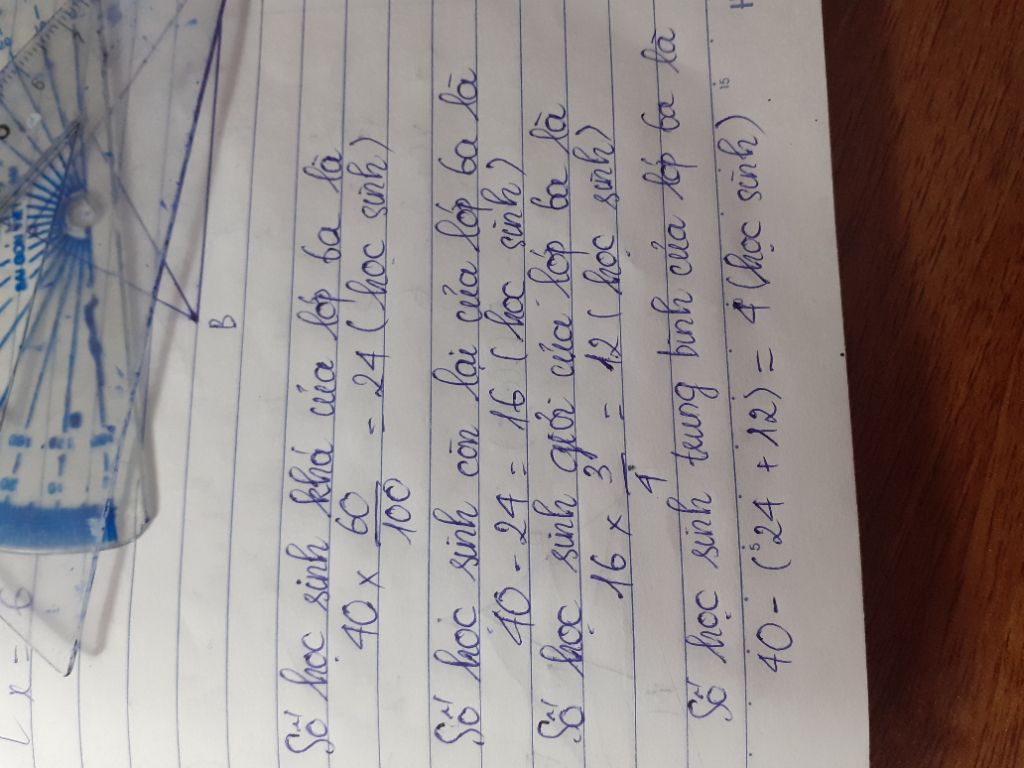 x = 6
B
Số học sinh khá của lớp 6a là
40 x 60/100 = 24 ( học sinh )
Số học sinh còn lại của lớp 6a là
40 - 24 = 16 ( học sinh )
Số học sinh giỏi của lớp 6a là
16 x 3/4 = 12 ( học sinh )
Số học sinh trung bình của lớp 6a là
40 - ( 24 + 12 ) = 4 ( học sinh )
5
15